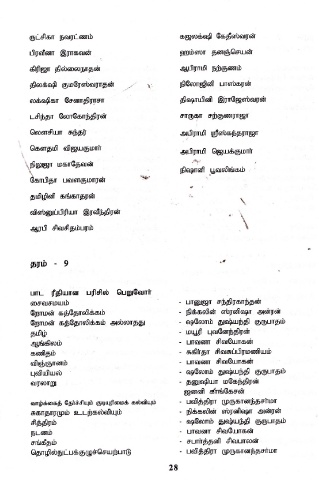 ருட்சிகா நவரட்ணம்
பிரவீணா இராகவன்
கிரிஜா தில்லைநாதன்
திலக்ஷி குமரேஸ்வரநாதன்
லக்ஷிகா சேனாதிராசா
டசிந்தா லோகேந்திரன்
லெளசியா சுந்தர்
கௌதமி விஜயகுமார்
நிலுஜா மகாதேவன்
கோபிதா பவளகுமாரன்
தமிழினி கங்காதரன்
விஸ்னுப்பிரியா இரவீந்திரன்
ஆரபி சிவசிதம்பரம்
கஜலக்ஷி கேதீஸ்வரன்
ஹம்ஸா தனஞ்செயன்
ஆபிராமி நற்குணம்
நிலோஜினி பாஸ்கரன்
திஷாயினி இராஜேஸ்வரன்
சாருகா சற்குணராஜா
அபிராமி ஸ்ரீஸ்கந்தராஜா
அபிராமி ஜெயக்குமார்
நிஷானி பூவலிங்கம்
தரம் - 9
பாட ரீதியான பரிசில் பெறுவோர்
சைவசமயம் - பானுஜா சந்திரகாந்தன்
றோமன் கத்தோலிக்கம் - நிக்கலின் ஸ்ரனிஷா அன்ரன்
றோமன் கத்தோலிக்கம் அல்லாதது - ஷலோம் துஷ்யந்தி குருபாதம்
தமிழ் - மயூரி புவனேந்திரன்
ஆங்கிலம் - பாவனா சிவயோகன்
கணிதம் - சுகிர்தா சிவசுப்பிரமணியம்
விஞ்ஞானம் - பாவனா சிவயோகன்
புவியியல் - ஷலோம் துஷ்யந்தி குருபாதம்
வரலாறு - தனுஷியா மகேந்திரன்
ஜனனி கங்கேசன்
வாழ்க்கைத் தேர்ச்சியும் குடியுரிமைக் கல்வியும் - பவித்திரா முருகானந்தசர்மா
சுகாதாரமும் உடற்கல்வியும் - நிக்கலின் ஸ்ரனிஷா அன்ரன்
சித்திரம் - ஷலோம் துஷ்யந்தி குருபாதம்
நடனம் - பாவனா சிவயோகன்
சங்கீதம் - சபார்த்தனி சிவபாலன்
தொழில்நுட்பக்குழுச்செயற்பாடு - பவித்திரா முருகானந்தசர்மா
28